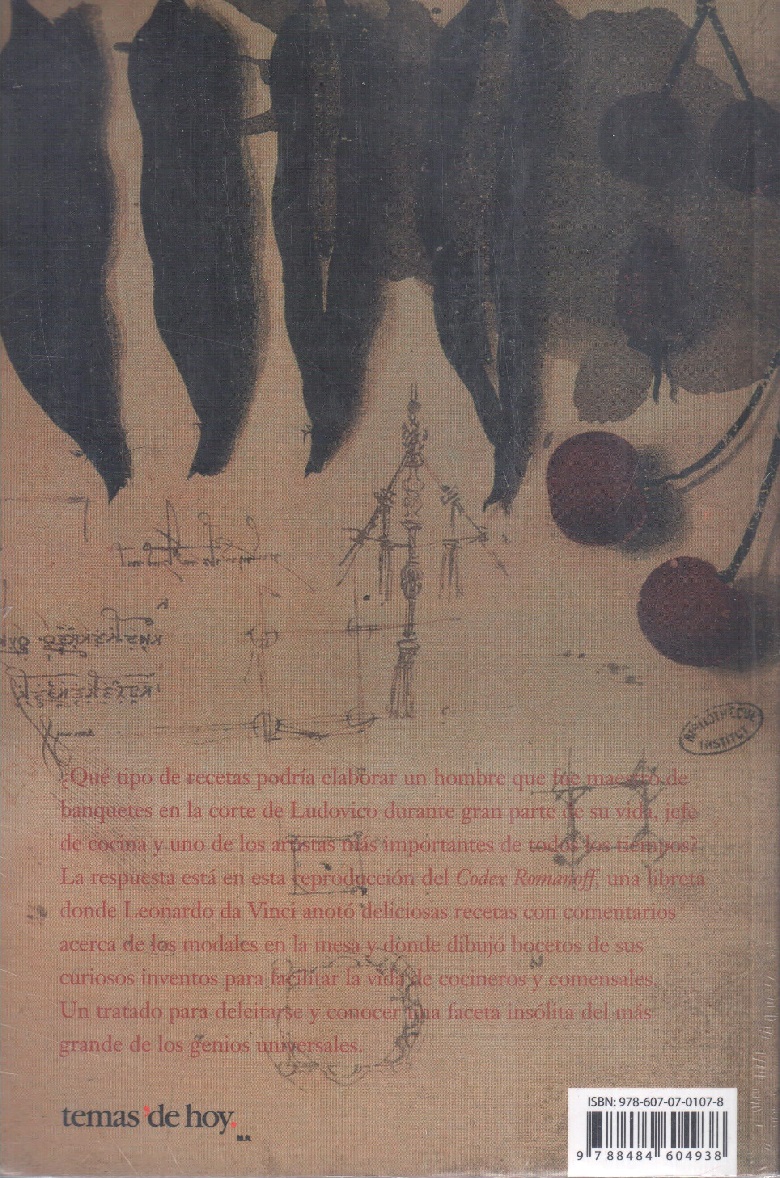 BIBLIOTHEQUE
INSTITUT
¿Qué tipo de recetas podría elaborar un hombre que fue maestro de
banquetes en la corte de Ludovico durante gran parte de su vida, jefe
de cocina y uno de los artistas más importantes de todos los tiempos?
La respuesta está en esta reproducción del Codex Romanoff, una libreta
donde Leonardo da Vinci anotó deliciosas recetas con comentarios
acerca de los modales en la mesa y donde dibujó bocetos de sus
curiosos inventos para facilitar la vida de cocineros y comensales.
Un tratado para deleitarse y conocer una faceta insólita del más
grande de los genios universales.
temas de hoy
M.R.
ISBN: 978-607-07-0107-8
9 788484 604938